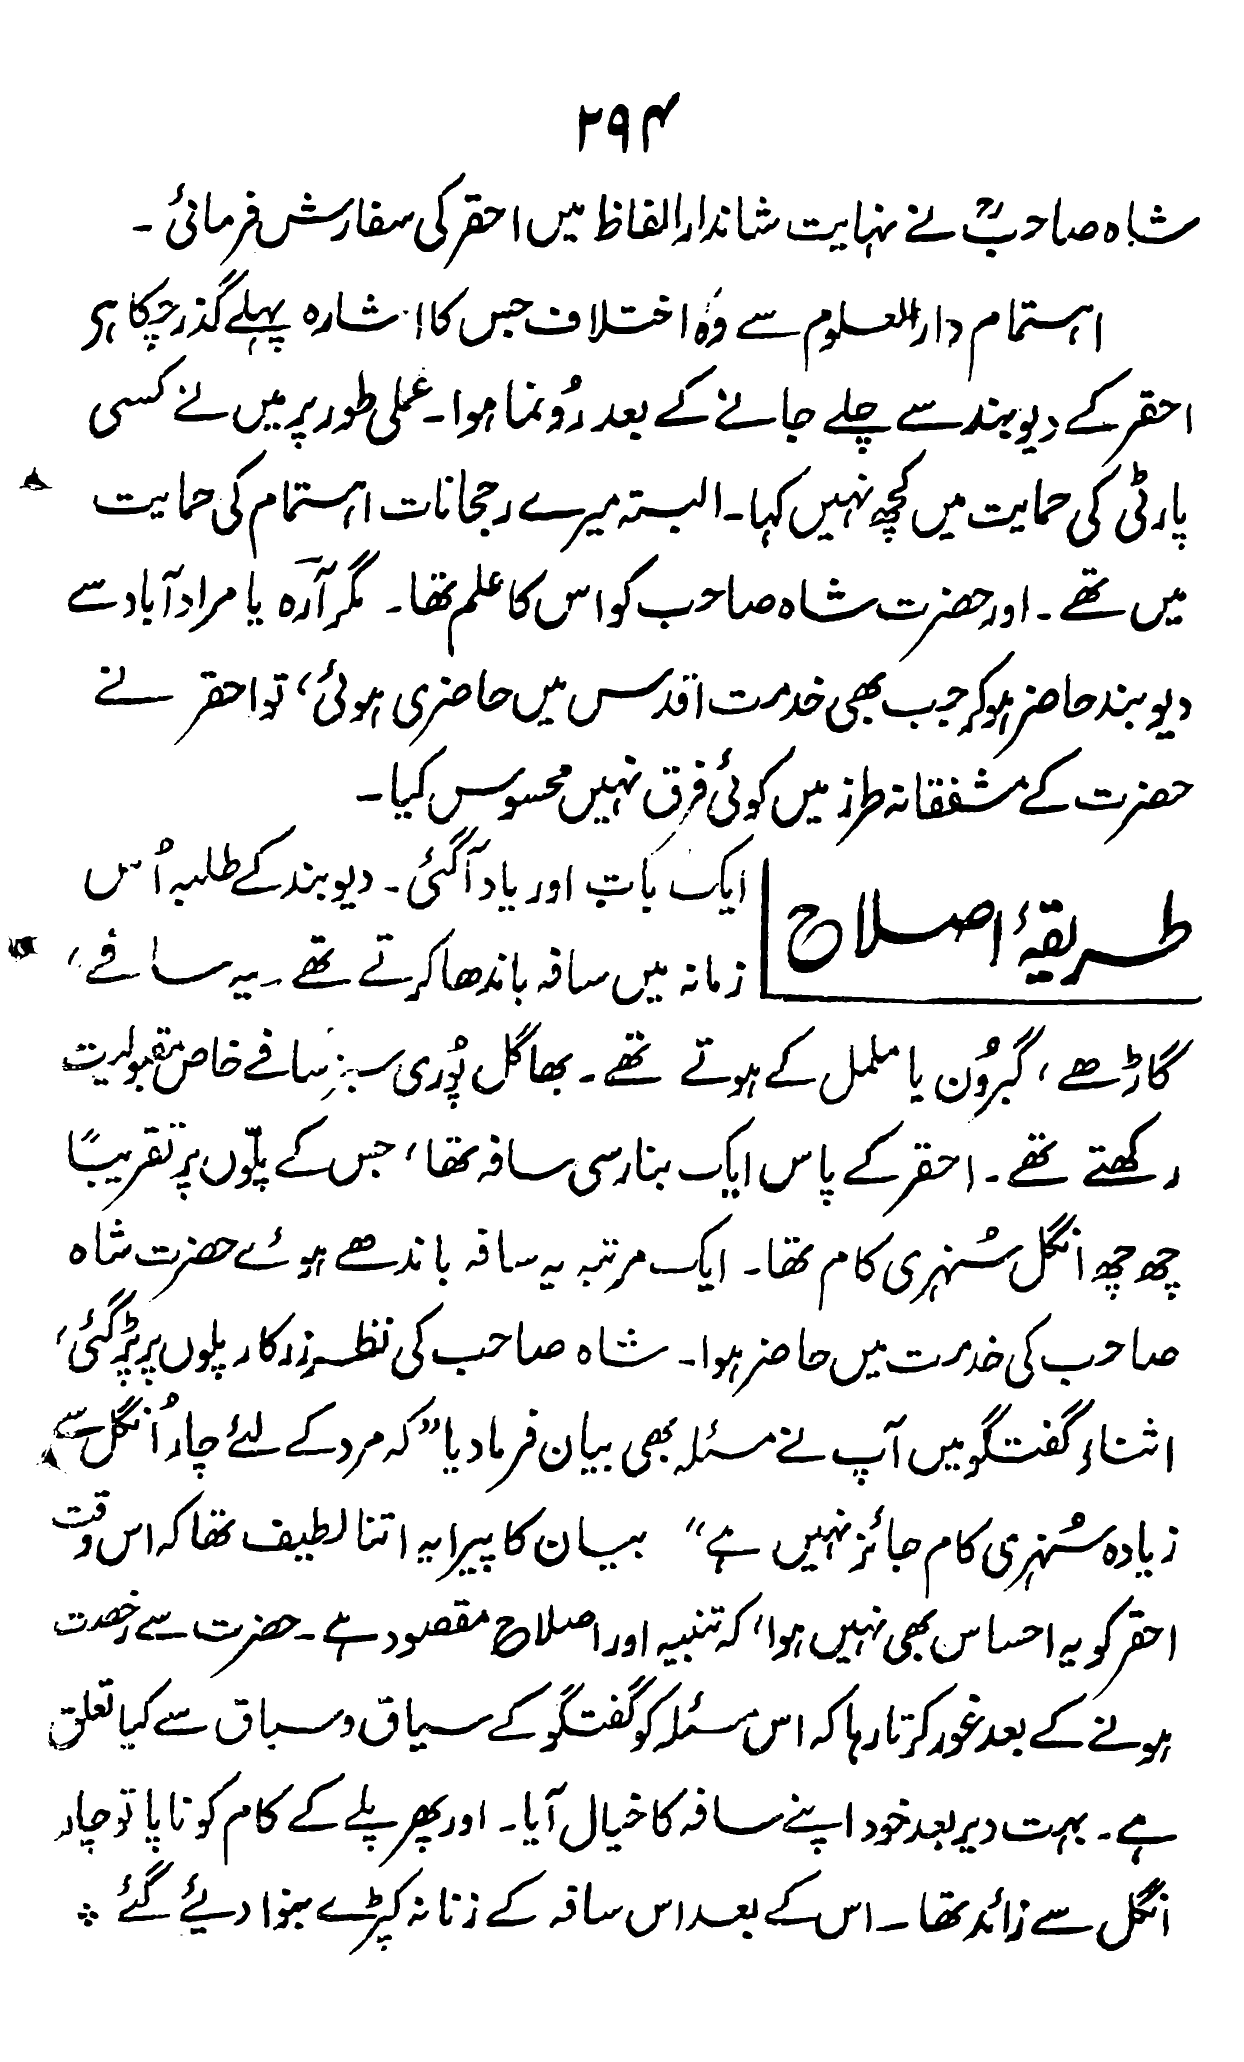 ۲۹۴
شاہ صاحبؒ نے نہایت شاندار الفاظ میں احقر کی سفارش فرمائی ۔
اہتمام دارالعلوم سے وُہ اختلاف جس کا اشارہ پہلے گذر چکا ہی
احقر کے دیوبند سے چلے جانے کے بعد رُونما ہوا۔ عملی طور پر میں نے کسی
پارٹی کی حمایت میں کچھ نہیں کہا۔ البتہ میرے رجحانات اہتمام کی حمایت
میں تھے ۔ اور حضرت شاہ صاحب کو اس کا علم تھا۔ مگر آرَہ یا مراد آباد سے
دیوبند حاضر ہو کر جب بھی خدمت اقدس میں حاضری ہوئی، تو احقر نے
حضرت کے مشفقانہ طرز میں کوئی فرق نہیں محسوس کیا۔
طریقۂ اصلاح
ایک بات اور یاد آگئی ۔ دیوبند کے طلبہ اُس
زمانہ میں سافہ باندھا کرتے تھے ۔ یہ سافے،
گاڑھے، گبرُون یا ململ کے ہوتے تھے ۔ بھاگل پُوری سبز سافے خاص مقبولیت
رکھتے تھے ۔ احقر کے پاس ایک بنارسی سافہ تھا، جس کے پلّوں پر تقریبًا
چھ چھ انگل سُنہری کام تھا۔ ایک مرتبہ یہ سافہ باندھے ہوئے حضرت شاہ
صاحب کی خدمت میں حاضر ہوا۔ شاہ صاحب کی نظر زرکار پلوں پر پڑ گئی،
اثناء گفتگو میں آپ نے مسئلہ بھی بیان فرما دیا ”کہ مرد کے لئے چار اُنگل سے
زیادہ سُنہری کام جائز نہیں ہے“ بیان کا پیرایہ اتنا لطیف تھا کہ اس وقت
احقر کو یہ احساس بھی نہیں ہوا، کہ تنبیہ اور اصلاح مقصود ہے ۔ حضرت سے رخصت
ہونے کے بعد غور کرتا رہا کہ اس مسئلہ کو گفتگو کے سیاق و سباق سے کیا تعلق
ہے ۔ بہت دیر بعد خود اپنے سافہ کا خیال آیا۔ اور پھر پلے کے کام کو ناپا تو چار
انگل سے زائد تھا ۔ اس کے بعد اس سافہ کے زنانہ کپڑے بنوا دیئے گئے ؞